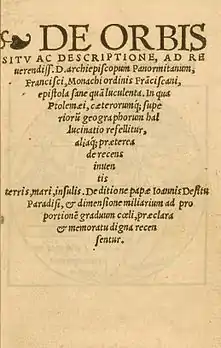 DE ORBIS
SITV AC DESCRIPTIONE, AD RE
uerendiss. D. archiepiscopum Panormitanum,
Francisci, Monachi ordinis Frãciscani,
epistola sane quã luculenta. In qua
Ptolemæi, cæterorumq; supe
riorũ geographorum hal
lucinatio refellitur,
aliaq; præterea
de recens
inuen
tis
terris, mari, insulis. De ditione papæ Ioannis De situ
Paradisi, & dimensione miliarium ad pro
portionẽ graduum cœli, præclara
& memoratu digna recen
sentur.